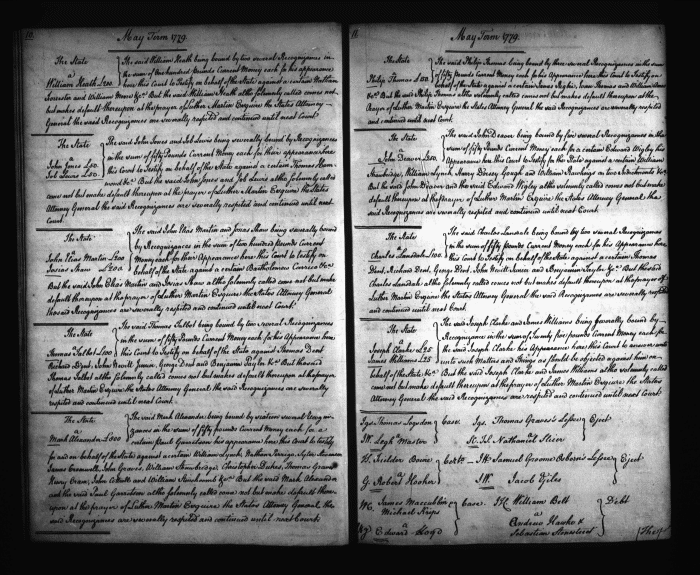 10.
May Term 1779
The State
a
William Heath £200.
The said William Heath being bound by two several Recognizances in
the sum of one hundred Pounds Current Money each for his appearance
here this Court to Testify on behalf of the State against a certain
and William &c. But the said William Heath altho solemnly called comes not
but makes default thereupon at the prayer of Luther Martin Esquire the States Attorney
General the said Recognizances are severally respited and continued until next Court.
The State
a
John Jones £50.
Job Lewis £50.
The said John Jones and Job Lewis being severally bound by Recognizances
in the sum of fifty Pounds Current Money each for their appearance here
this Court to Testify on behalf of the State against a certain Thomas
&c. But the said John Jones and Job Lewis altho solemnly called
come not but make default thereupon at the prayer of Luther Martin Esquire the States
Attorney General the said Recognizances are severally respited and continued until next
Court.
The State
a
John Elias Martin £200
Josias Shaw £200.
The said John Elias Martin and Josias Shaw being severally bound
by Recognizances in the sum of two hundred Pounds Current
Money each for their Appearance here this Court to Testify on
behalf of the State against a certain Bartholomew &c.
But the said John Elias Martin and Josias Shaw altho solemnly called come not but make
default thereupon at the prayer of Luther Martin Esquire the States Attorney General
the said Recognizances are severally respited and continued until next Court.
The State
a
Thomas Talbot £100.
The said Thomas Talbot being bound by two several Recognizances
in the sum of fifty Pounds Current Money each for his Appearance here
this Court to Testify on behalf of the State against Thomas Dent
Richard Dent, John Nevitt Jinan George Dent and Benjamin &c. But the said
Thomas Talbot altho solemnly called comes not but makes default thereupon at the prayer
of Luther Martin Esquire the States Attorney General the said Recognizances are severally
respited and continued until next Court.
The State
a
Mark Alexander £800
The said Mark Alexander being by sixteen several Recog-
nizances in the sum of fifty pounds Current Money each for
a certain Paul his appearance here this Court to testify
for and on behalf of the State against a certain William Lynch,
James Cromwell, John Graves, William Stansbridge, Christopher Dukes, Thomas
Henry and William &c. But the said Mark Alexander
and the said Paul altho solemnly called come not but make default there
upon at the prayer of Luther Martin Esquire the States Attorney General the
said Recognizances are severally respited and continued until next Court.
11
May Term 1779.
The State
a
Philip Thomas £150
The said Philip Thomas being bound by three several Recognizances in the sum
of fifty Pounds Current Money each for his Appearance here this Court to Testify on
behalf of the State against a certain James
&c. But the said Philip Thomas altho solemnly called comes not but makes default thereupon at the
Prayer of Luther Martin Esquire the States Attorney General the said Recognizances are severally respited
and continued until next Court.
The State
a
John Deaver £250
The said John Deaver being bound by five several Recognizances in the
sum of fifty Pounds Current Money each for a certain Edward Wigley his
Appearance here this Court to Testify for the State against a certain William
Stansbridge, William Lynch, Henry Dorsey Gough and William on two Indictments &c.
But the said John Deaver and the said Edward Wigley altho solemnly called come not but make
default thereupon at the prayer of Luther Martin Esquire the States Attorney General the
said Recognizances are severally respited and continued until next Court.
The State
a
Charles Lansdale £100.
The said Charles Lansdale being bound by two several Recognizances
in the sum of fifty pounds Current Money each for his Appearance here
this Court to Testify on behalf of the State against a certain Thomas
Dent, Richard Dent, George Dent John Nevitt Jinan and Benjamin &c. But the said
Charles Lansdale altho solemnly called comes not but makes default thereupon at the prayer of
Luther Martin Esquire the States Attorney General the said Recognizances are severally respited
and continued until next Court.
The State
a
Joseph Clarke £25
James Williams £25
The said Joseph Clarke and James Williams being severally bound by
Recognizance in the sum of Twenty five pounds Current Money each for
the said Joseph Clarke his Appearance here this Court to answer unto
such Matters and things as should be objected against him on
behalf of the State &c. But the said Joseph Clarke and James Williams altho solemnly called
come not but make default thereupon at the prayer of Luther Martin Esquire the States
Attorney General the said Recognizances are respited and continued until next Court
Jgs. Thomas Logsdon
a
Leigh Master
Case.
Jgs. Thomas Graves's Lessee
a
Nathanael
Eject
Boine
a
G. Robert Hooker
Samuel Groome Osborn's Lessee
a
Jacob Giles
Eject
WC. James Maccubbin
Michael
a
Edward Lloyd
Case.
William Bell
a
Andrew Hawke &
Sebastian
Debt
The